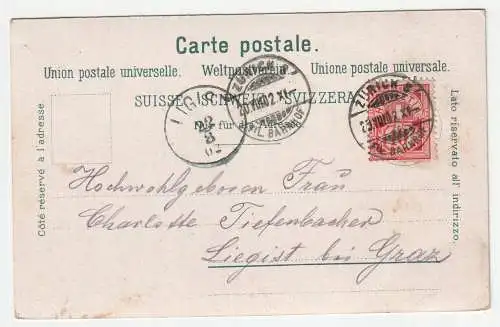 Carte postale.
Union postale universelle. Weltpostverein. Unione postale universale.
SUISSE. SCHWEIZ. SVIZZERA.
Nur für die Adresse
Côté réservé à l'adresse.
Lato riservato all' indirizzo.
ZÜRICH
FIL. BAHNHOF
ZÜRICH
FIL. BAHNHOF
LIGIST
22
3
02
Hochwohlgeboren Frau
Charlotte Tiefenbacher
Liegist bei Graz